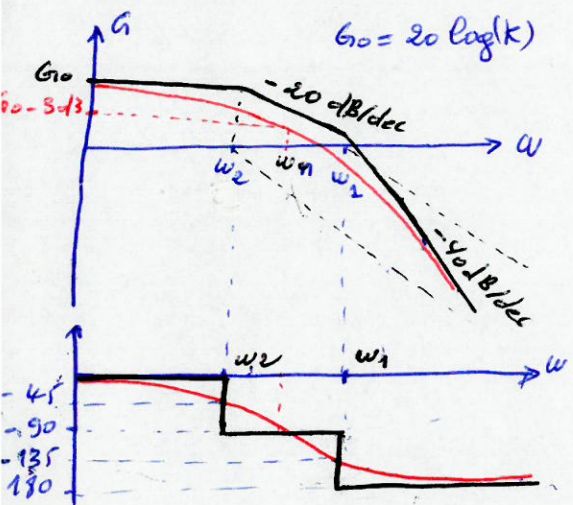 G
G₀ = 20 log(K)
G₀
-20 dB/dec
G₀-3dB
ω
ω₂
ωn
ω₁
-40 dB/dec
ω₂
ω₁
ω
-45
-90
-135
180